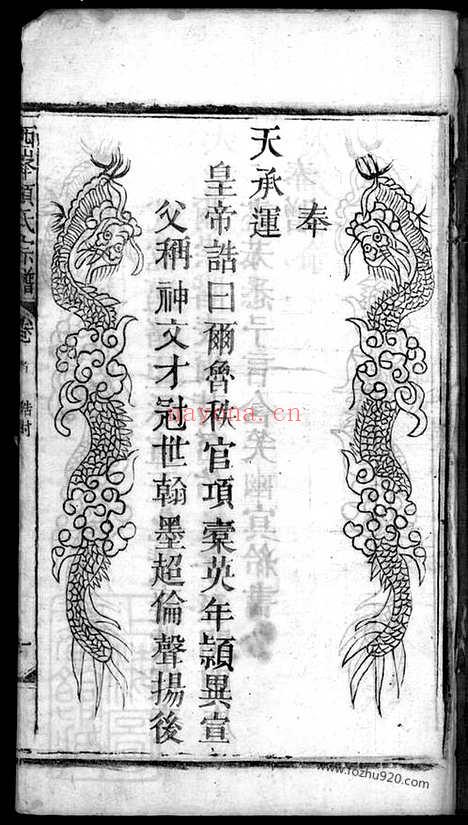 奉
天承運
皇帝誥曰爾魯秩官項橐英年頴異宣
父稱神文才冠世翰墨超倫聲揚後
項氏宗譜
卷
誥封
一
nayona.cn
www.fozhu920.com